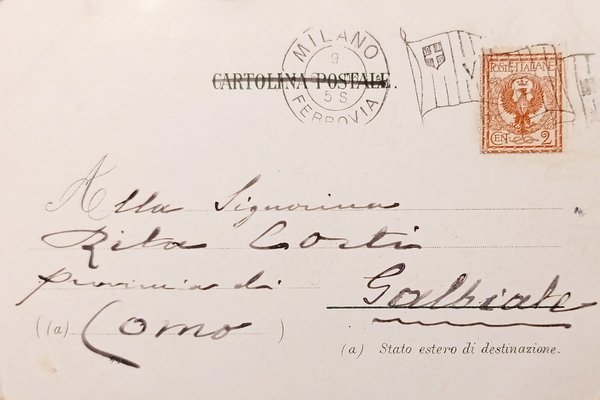 MILANO
9
5 S
FERROVIA
CARTOLINA POSTALE.
V
POSTE ITALIANE
CEN 2
Alla Signorina
Rita Corti
provincia di Galbiate
((a) Como )
(a) Stato estero di destinazione.